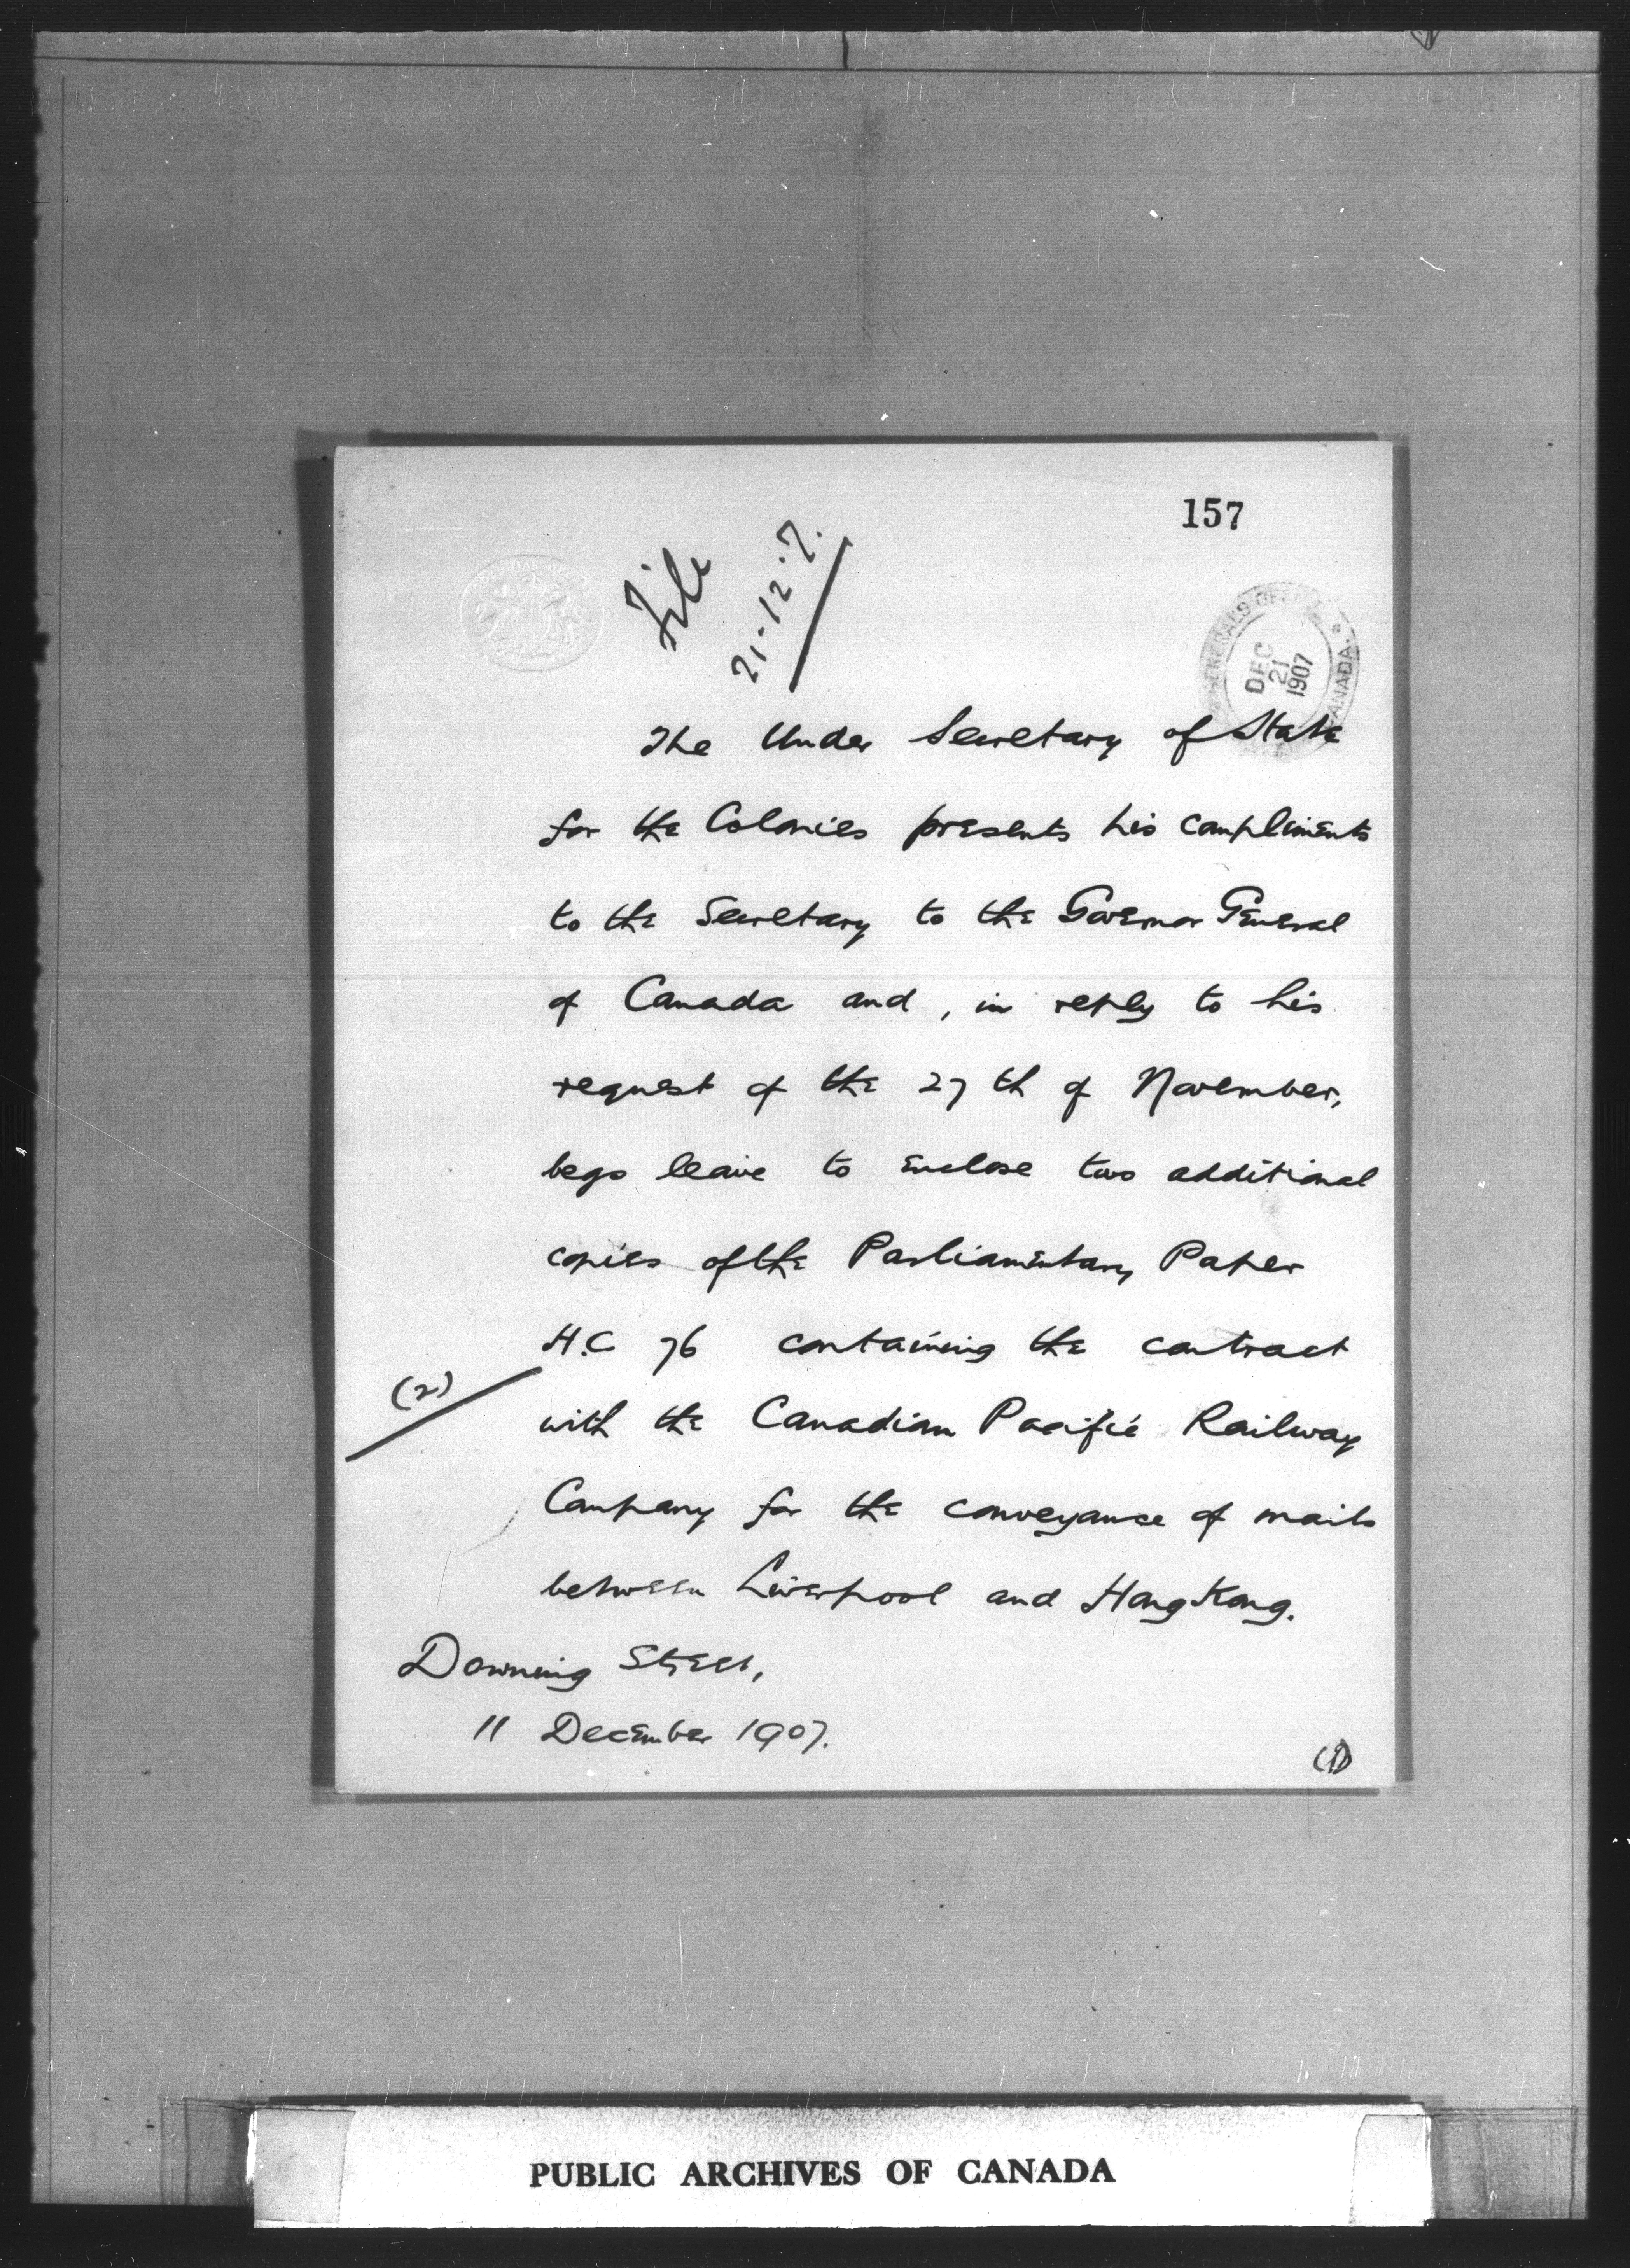 157
File
21.12.7.
GENERAL'S OFFICE
CANADA
DEC
21
1907
The Under Secretary of State
for the Colonies presents his compliments
to the Secretary to the Governor General
of Canada and, in reply to his
request of the 27th of November,
begs leave to enclose two additional
copies of the Parliamentary Paper
H.C 76 containing the contract
(2)
with the Canadian Pacific Railway
Company for the conveyance of mails
between Liverpool and Hong Kong.
Downing Street,
11 December 1907.
(1)
PUBLIC ARCHIVES OF CANADA